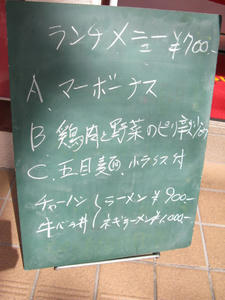 ランチメニュー ¥700-
A. マーボーナス
B 鶏肉と野菜のピリ辛
C. 五目麺. 小ライス付
チャーハン(ラーメン ¥900-
牛バラ丼(ネギラーメン ¥1,000-